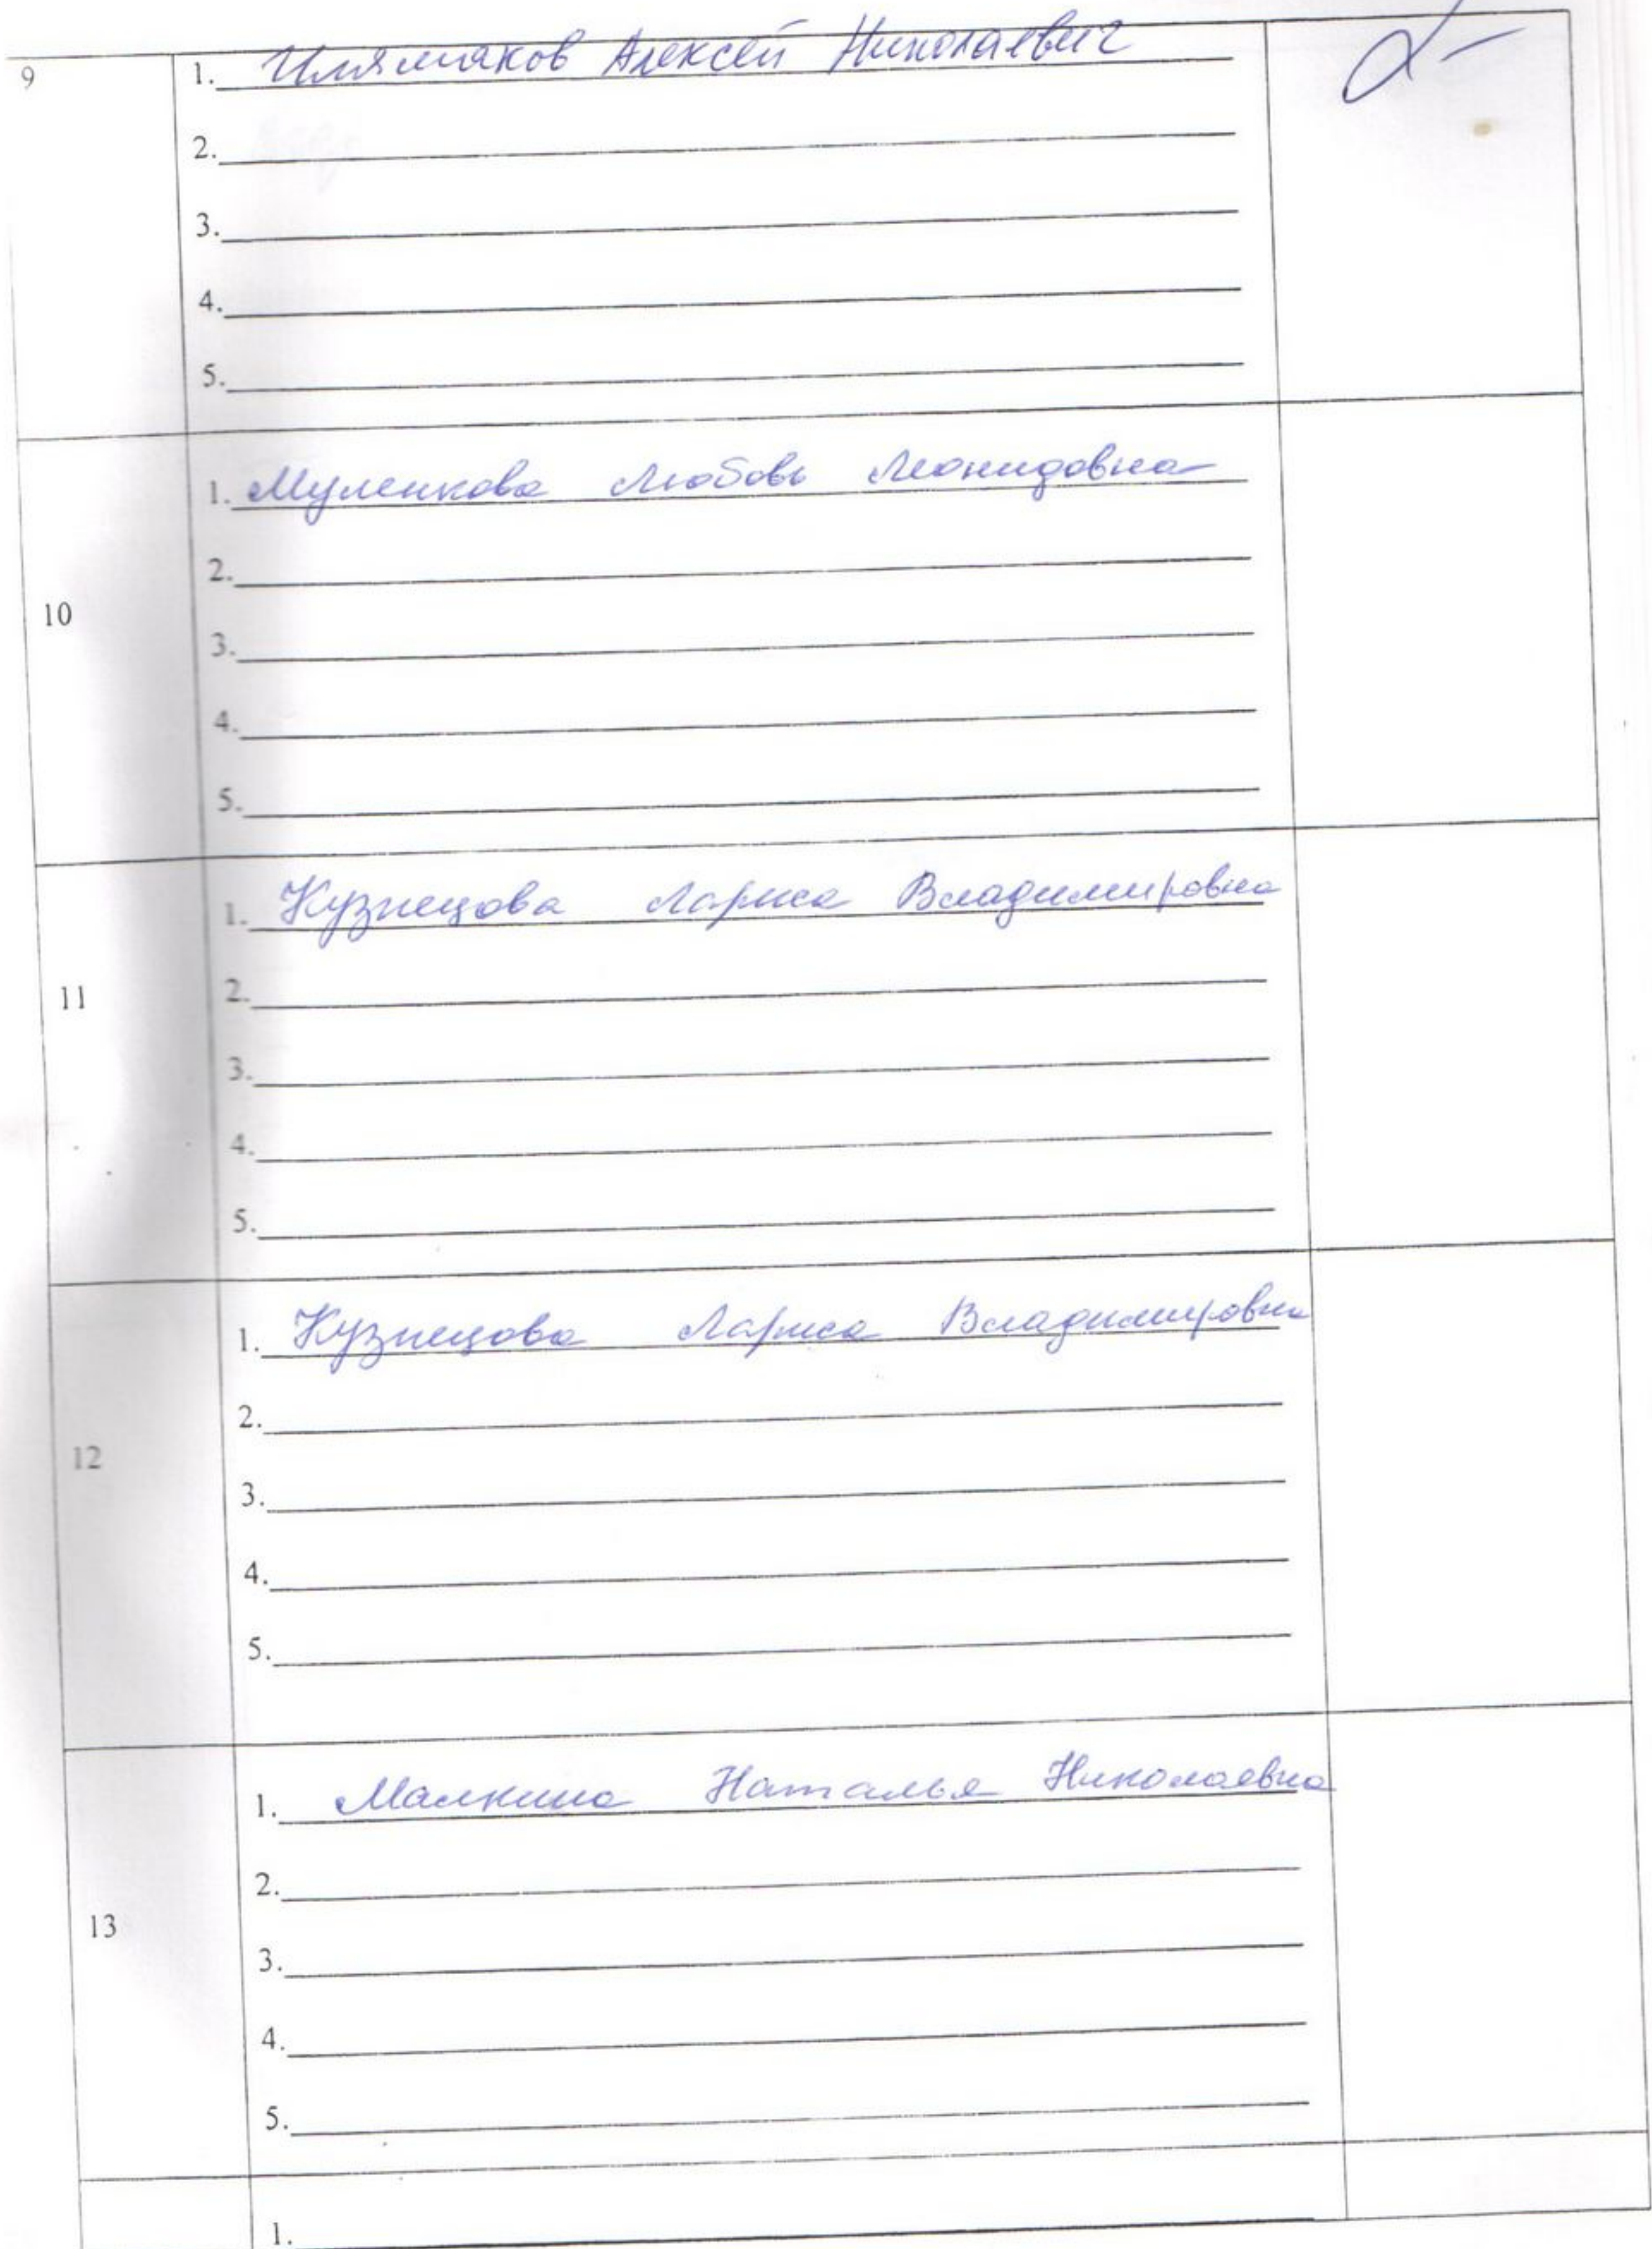 9
1. Алексей Николаевич
2.
3.
4.
5.
10
1. Муленкова Любовь Леонидовна
2.
3.
4.
5.
11
1. Кузнецова Лариса Владимировна
2.
3.
4.
5.
12
1. Кузнецова Лариса Владимировна
2.
3.
4.
5.
13
1. Малкина Наталья Николаевна
2.
3.
4.
5.
1.